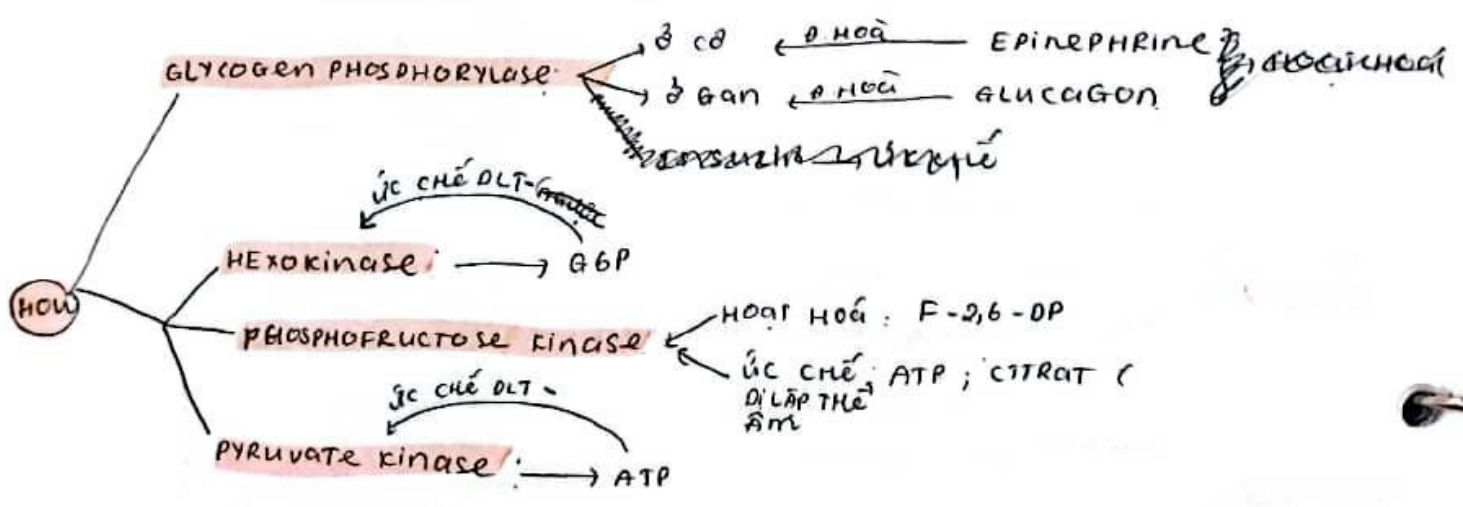 GLYCOGEN PHOSPHORYLASE:
Ở CƠ Đ.HOÀ EPINEPHRINE
Ở GAN Đ.HOÀ GLUCAGON
ỨC CHẾ DLT -
HEXOKINASE: G6P
HOW
PHOSPHOFRUCTOSE KINASE
HOẠT HOÁ: F-2,6-DP
ỨC CHẾ: ATP; CITRAT (
DỊ LẬP THỂ
ÂM
ỨC CHẾ DLT -
PYRUVATE KINASE: ATP